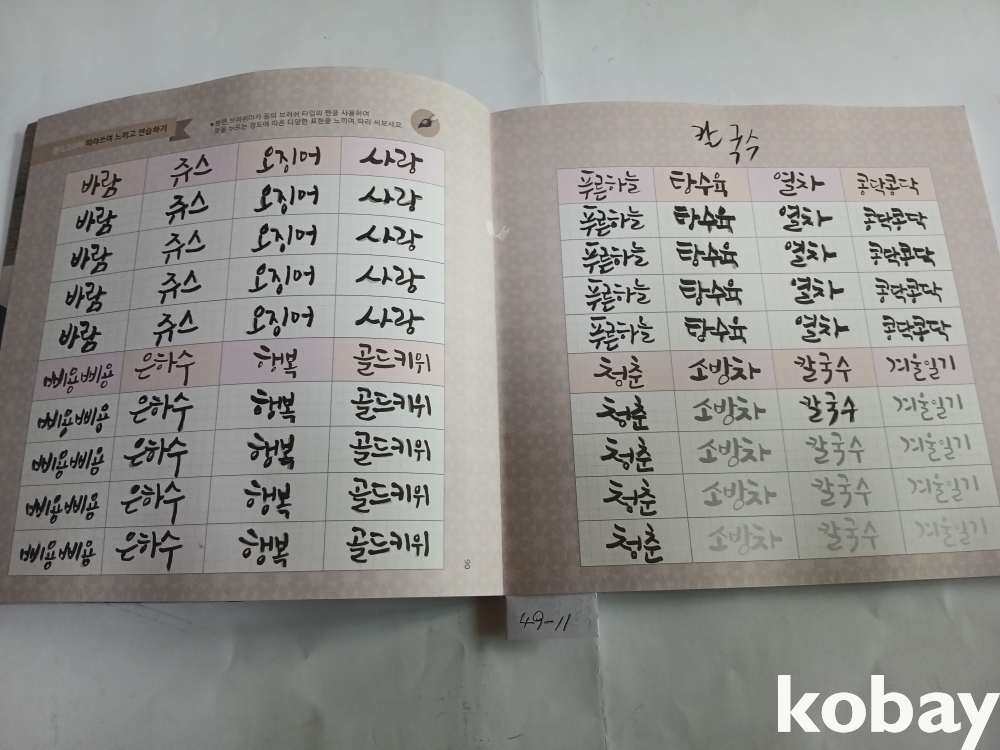 따라쓰며 느끼고 연습하기
●붓펜, 브러쉬마카 등의 브러쉬 타입의 펜을 사용하여
붓을 누르는 정도에 따른 다양한 표현을 느끼며 따라 써보세요.
바람 쥬스 오징어 사랑
바람 쥬스 오징어 사랑
바람 쥬스 오징어 사랑
바람 쥬스 오징어 사랑
바람 쥬스 오징어 사랑
삐용삐용 은하수 행복 골드키위
삐용삐용 은하수 행복 골드키위
삐용삐용 은하수 행복 골드키위
삐용삐용 은하수 행복 골드키위
삐용삐용 은하수 행복 골드키위
90
칼국수
푸른하늘 탕수육 열차 콩닥콩닥
푸른하늘 탕수육 열차 콩닥콩닥
푸른하늘 탕수육 열차 콩닥콩닥
푸른하늘 탕수육 열차 콩닥콩닥
푸른하늘 탕수육 열차 콩닥콩닥
청춘 소방차 칼국수 겨울일기
청춘 소방차 칼국수 겨울일기
청춘 소방차 칼국수 겨울일기
청춘 소방차 칼국수 겨울일기
청춘 소방차 칼국수 겨울일기
49-11
kobay